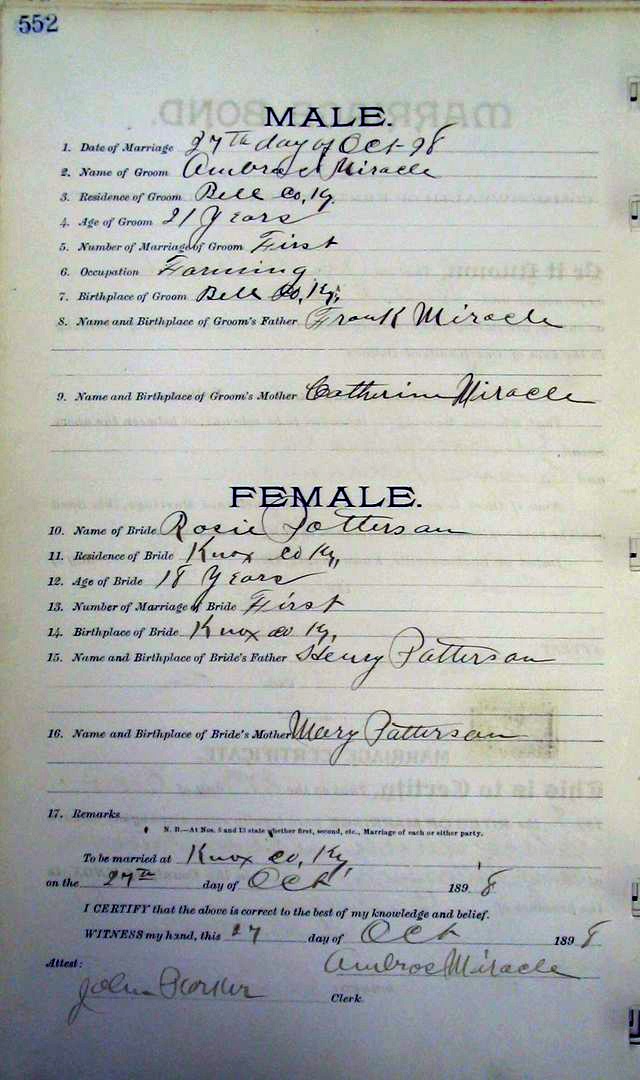 552
MALE.
1. Date of Marriage 27th day of Oct-98
2. Name of Groom Ambrose Miracle
3. Residence of Groom Bell Co, Ky.
4. Age of Groom 21 Years
5. Number of Marriage of Groom First
6. Occupation Farming
7. Birthplace of Groom Bell Co, Ky,
8. Name and Birthplace of Groom's Father Frank Miracle
9. Name and Birthplace of Groom's Mother Catherine Miracle
FEMALE.
10. Name of Bride Rosie Patterson
11. Residence of Bride Knox Co Ky,
12. Age of Bride 18 Years
13. Number of Marriage of Bride First
14. Birthplace of Bride Knox Co Ky,
15. Name and Birthplace of Bride's Father Henry Patterson
16. Name and Birthplace of Bride's Mother Mary Patterson
17. Remarks
N. B.—At Nos. 5 and 13 state whether first, second, etc., Marriage of each or either party.
To be married at Knox Co, Ky,
on the 27th day of Oct 1898
I CERTIFY that the above is correct to the best of my knowledge and belief.
WITNESS my hand, this 27 day of Oct 1898
Attest: Ambrose Miracle
John Clerk.